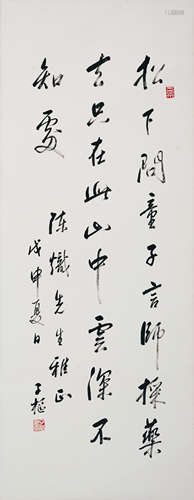 松下問童子言師採藥
去只在此山中雲深不
知處
陈熾先生雅正
戊申夏日